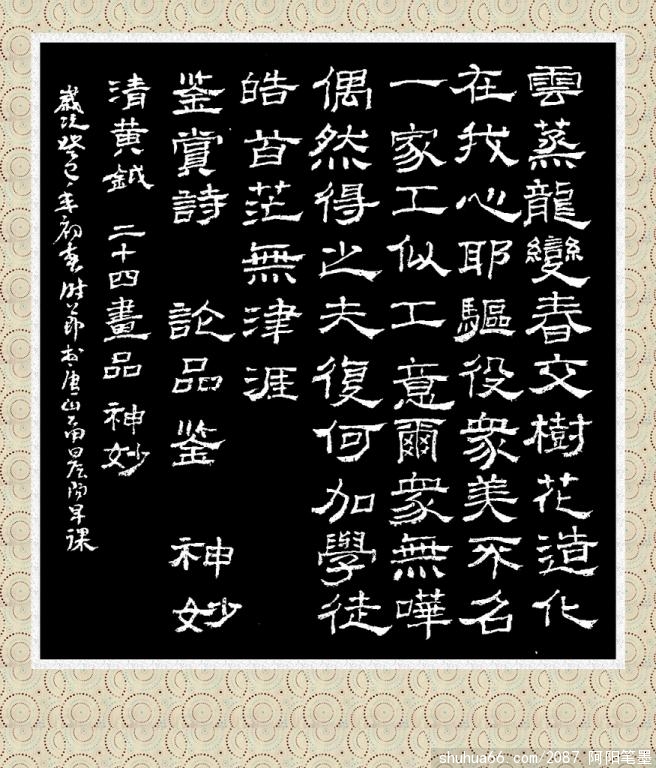 雲蒸龍變春交樹花造化
在我心耶驅役衆美不名
一家工似工意爾衆無嘩
偶然得之夫復何加學徒
皓首茫無津涯
鉴賞詩 論品鉴 神妙
清黄鉞 二十四畫品 神妙
歲次癸巳年初春時節于唐山
早課
shuhua66.com/2087 阿阳笔墨